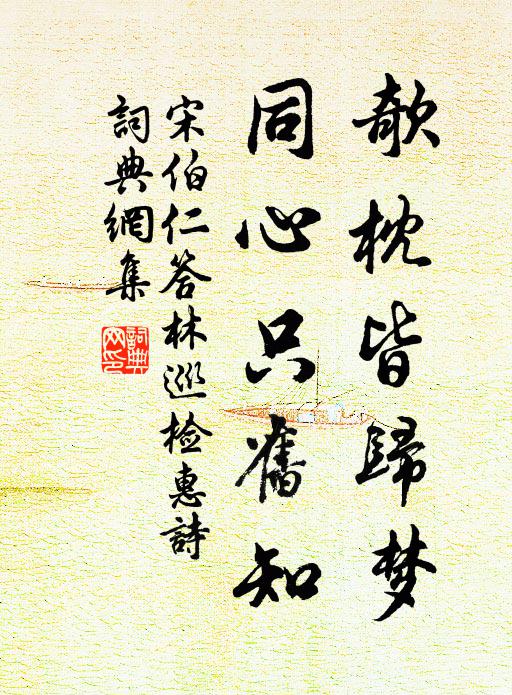 欹枕皆歸梦
同心只舊知
宋伯仁答林巡檢惠詩
詞典網集
詞典网印